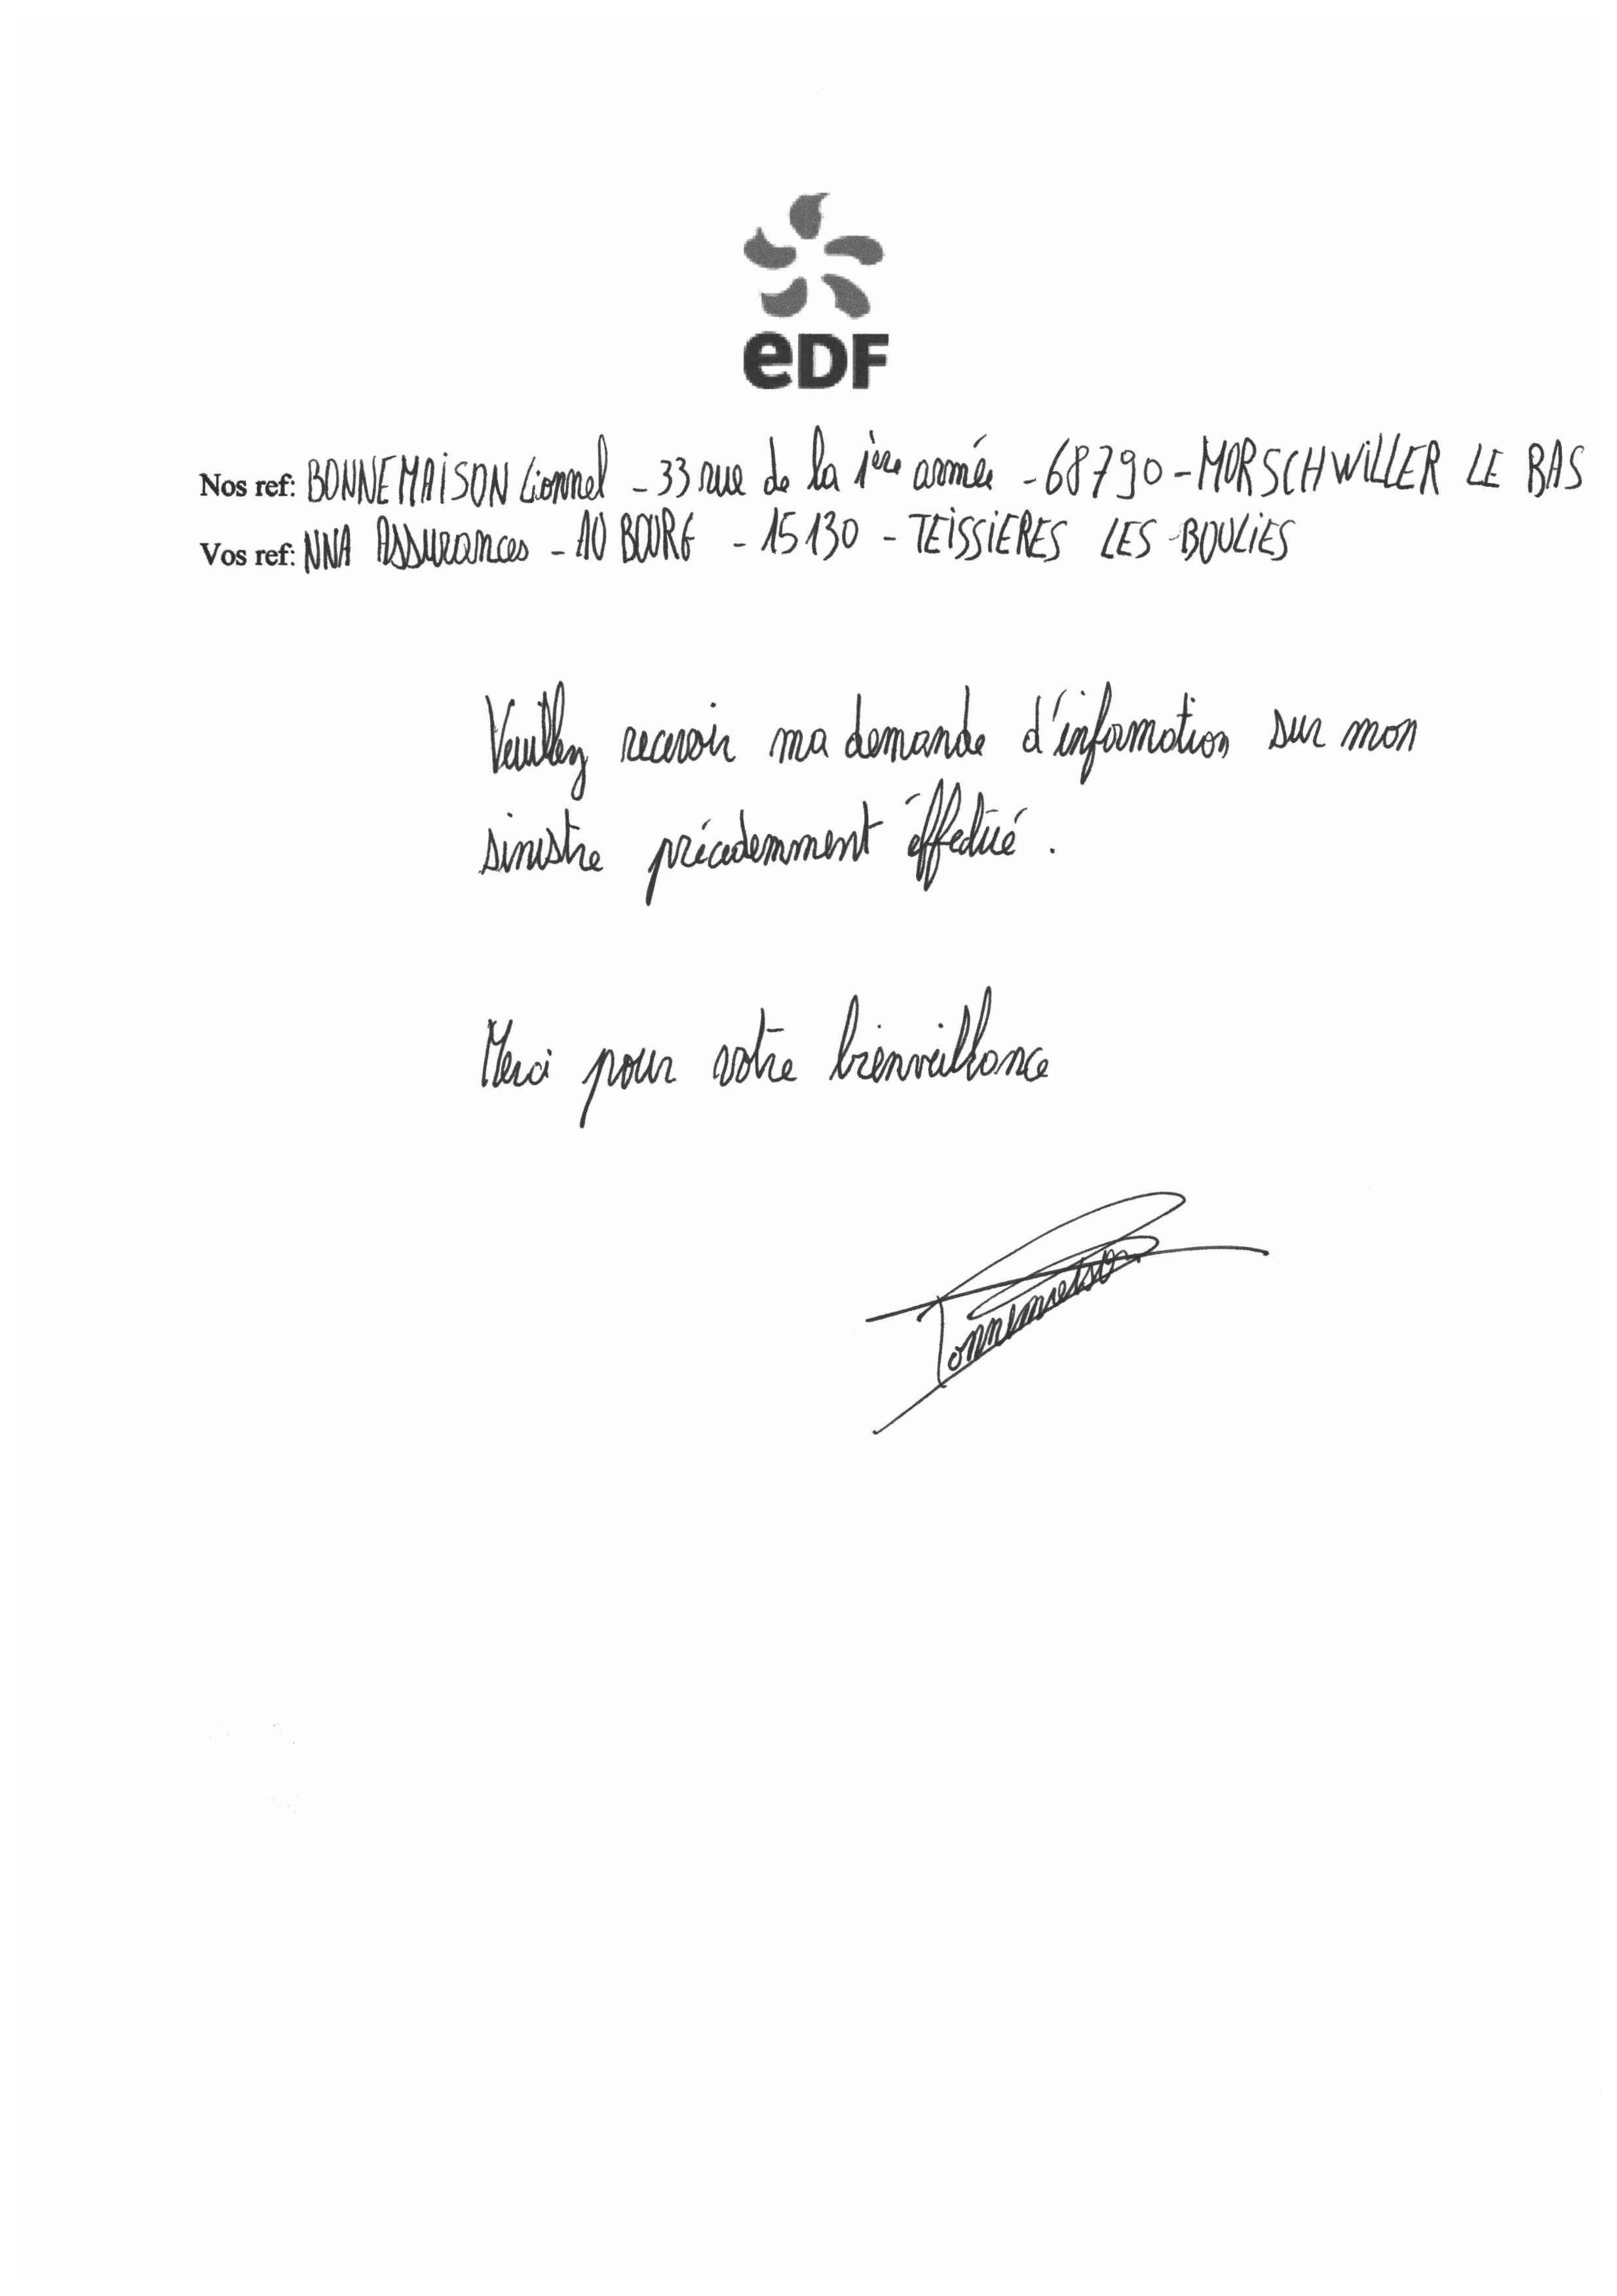 eDF
Nos ref: BONNEMAISON Lionnel - 33 rue de la 1ère armée - 68790 - MORSCHWILLER LE BAS
Vos ref: NNA Assurances - AU BOURG - 15130 - TEISSIERES LES BOULIES
Veuillez recevoir ma demande d'information sur mon
sinistre précedemment éffectué.
Merci pour votre bienveillance
Bonnemaison